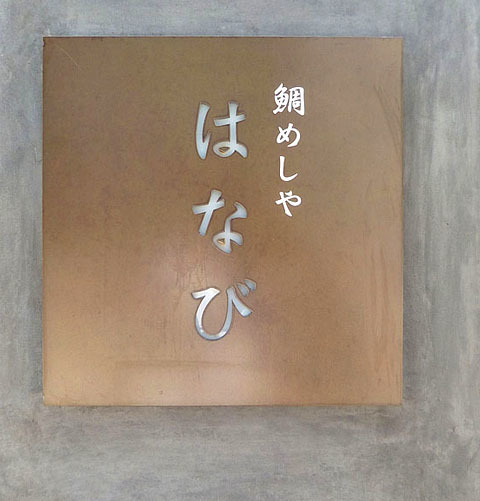 鯛めしや
はなび